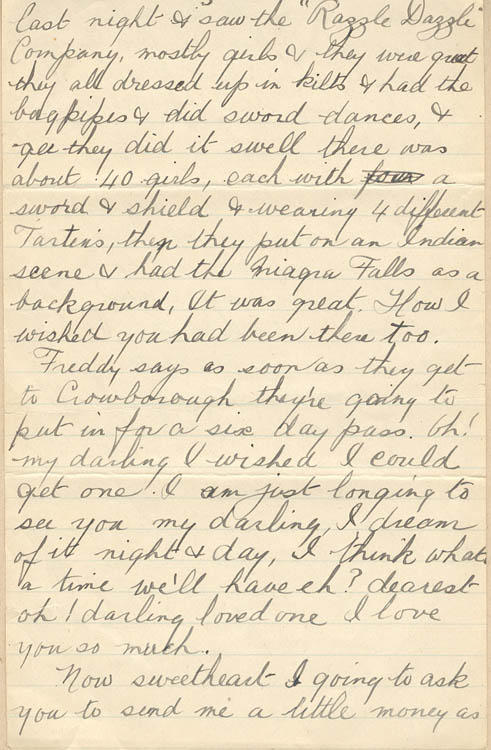 last night & saw the "Razzle Dazzle"
Company, mostly girls & they were great
they all dressed up in kilts & had the
bagpipes & did sword dances, &
gee they did it swell there was
about 40 girls, each with four a
sword & shield & wearing 4 different
Tartens, then they put on an Indian
scene & had the Niagra Falls as a
background, It was great. How I
wished you had been there too.
Freddy says as soon as they get
to Crowborough they're going to
put in for a six day pass. Oh!
my darling I wished I could
get one. I am just longing to
see you my darling, I dream
of it night & day, I think what
a time we'll have eh? dearest
oh! darling loved one I love
you so much.
Now sweetheart I going to ask
you to send me a little money as